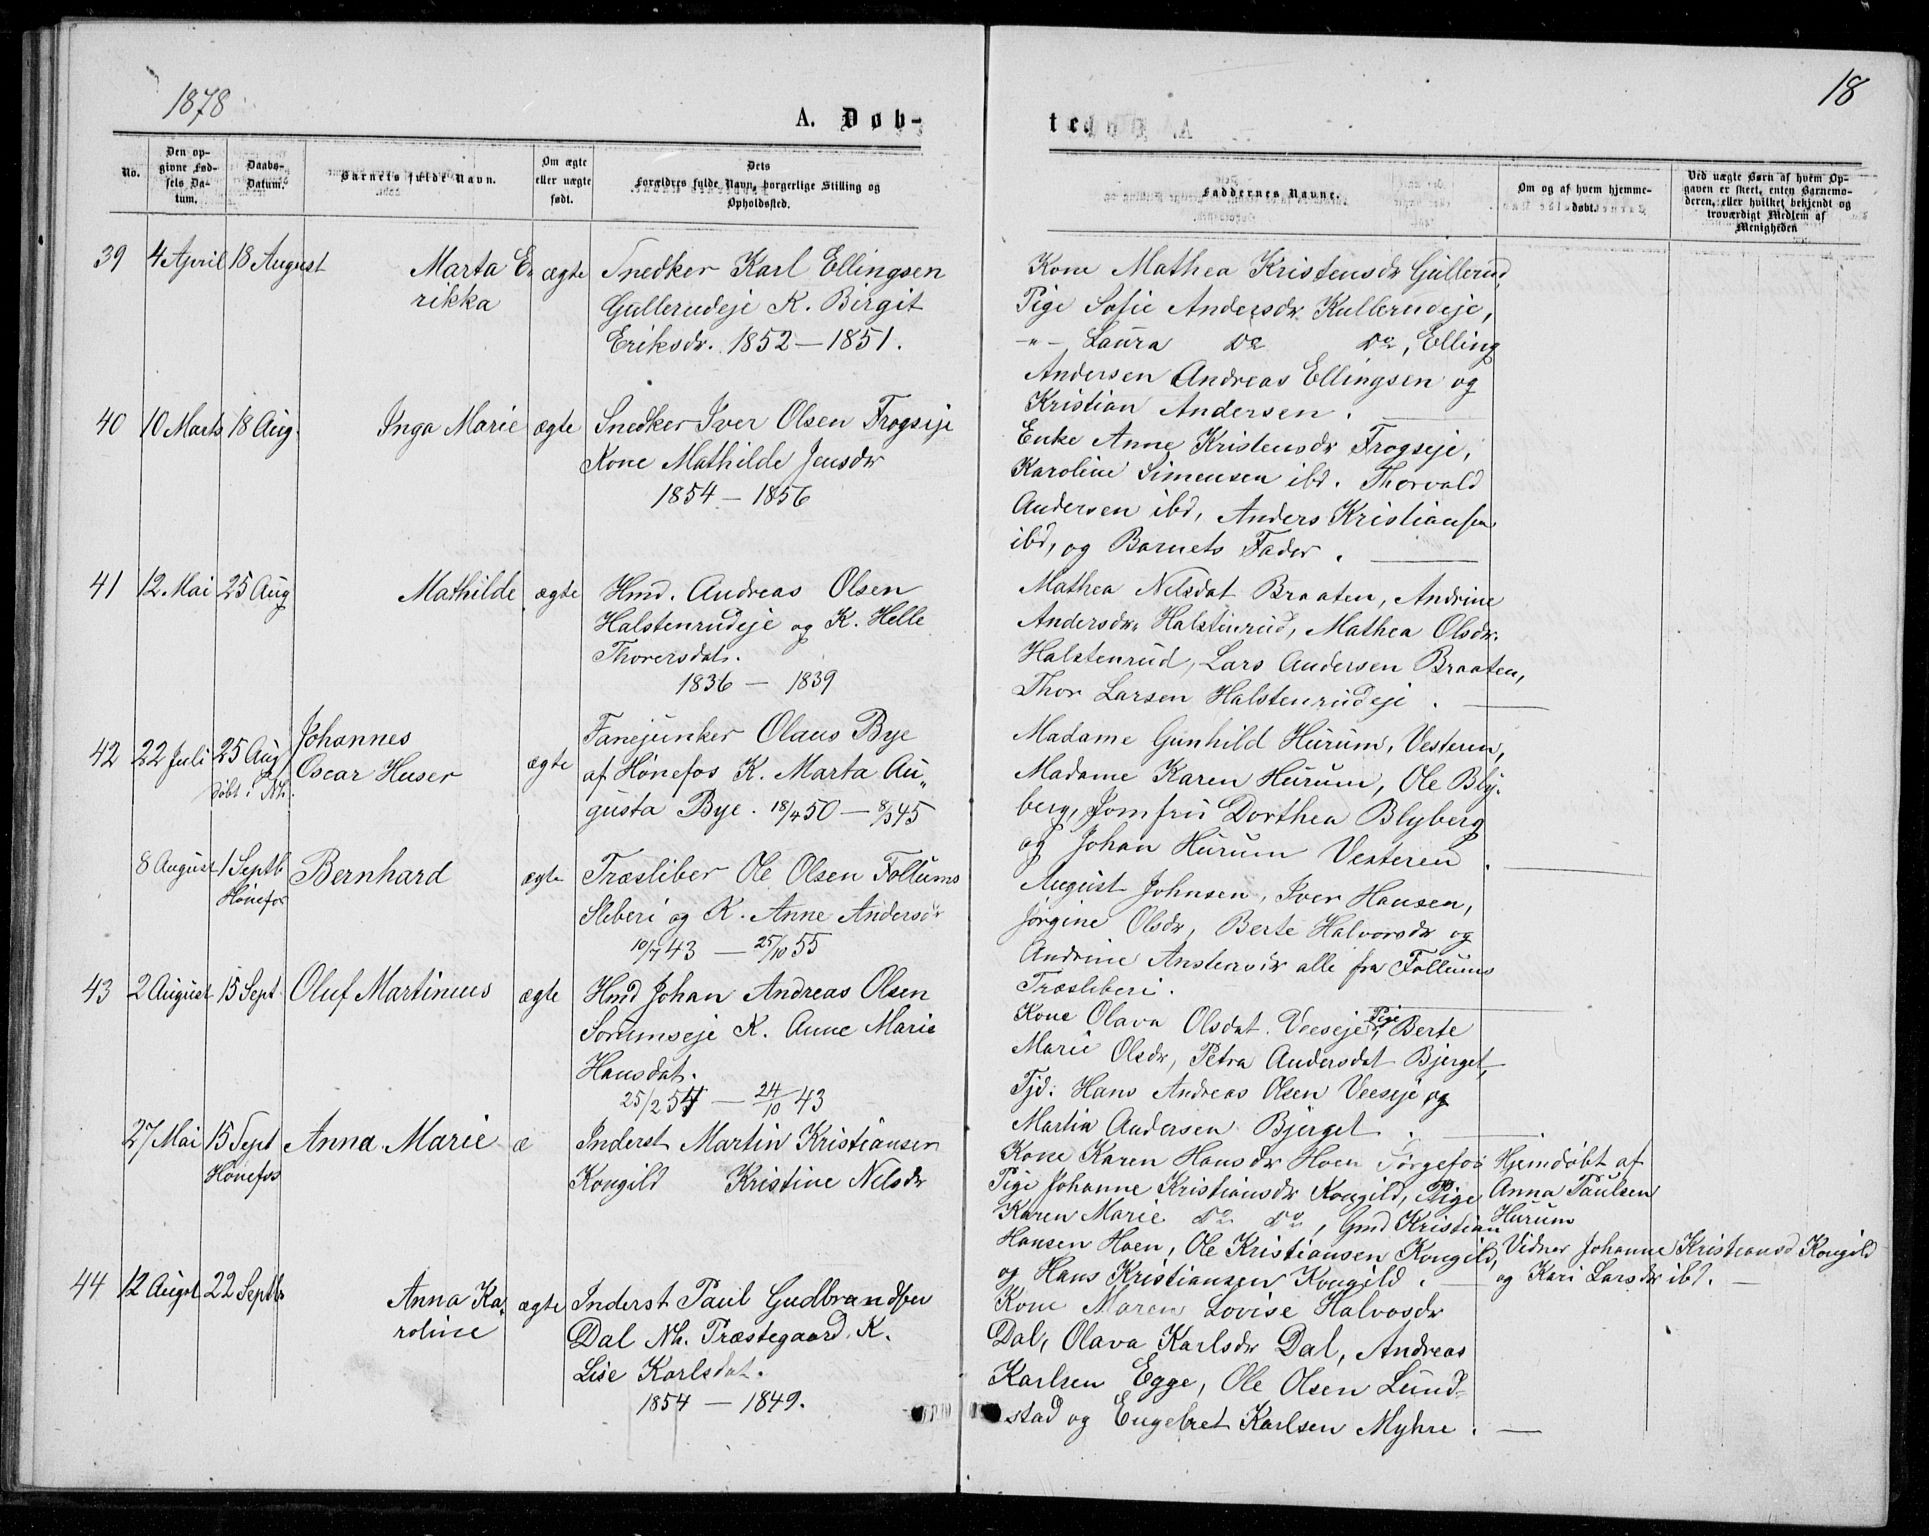 1878
18
A. Døb-
te.
No.
Den op-
givne Fød-
sels Da-
tum.
Daabs-
Datum.
Barnets fulde Navn.
Om ægte
eller uægte
født.
Dets
Forældres fulde Navn, borgerlige Stilling og
Opholdssted.
Faddernes Navne.
Om og af hvem hjemme-
døbt.
Ved uægte Børn af hvem Op-
gaven er skeet, enten Barnemo-
deren, eller hvilket bekjendt og
troværdigt Medlem af
Menigheden
39 4 April 18 August Marta E- ægte Snedker Karl Ellingsen
rikka Gullerudeje K. Birgit
Eriksdr. 1852 — 1851.
Kone Mathea Kristensdr Gullerud,
Pige Sofie Andersdr. Kullerudeje,
-"- Laura Do Do, Elling
Andersen Andreas Ellingsen og
Kristian Andersen.
40 10 Marts 18 Aug. Inga Marie ægte Snedker Iver Olsen Frogseje
Kone Mathilde Jensdr
1854 — 1856
Enke Anne Kristensdr Frogseje,
Karoline Simensen ibd. Thorvald
Andersen ibd, Anders Kristiansen
ibd, og Barnets Fader.
41 12 Mai 25 Aug Mathilde ægte Hmd. Andreas Olsen
Halstenrudeje og K. Helle
Thorersdat.
1836 — 1839
Mathea Nelsdat Braaten, Andrine
Andersdr. Halstenrud, Mathea Olsdr.
Halstenrud, Lars Andersen Braaten,
Thor Larsen Halstenrudeje.
42 22 Juli 25 Aug Johannes
Oscar Huser ægte
døbt i Nh.
Fanejunker Olaus Bye
af Hønefos K. Marta Au-
gusta Bye. 18/4 50 — 8/3 45
Madame Gunhild Hurum, Vesteren,
Madame Karen Hurum, Ole Bly-
berg, Jomfru Dorthea Blyberg
og Johan Hurum Vesteren.
8 August 1 Septb Bernhard ægte Træsliber Ole Olsen Follums
Hønefos
Sliberi og K. Anne Andersdr
10/7 43 — 25/10 55
August Johnsen, Iver Hansen,
Jørgine Olsdr, Berte Halvorsdr og
Andrine Anstensdr alle fra Follums
Træsliberi.
43 2 August 15 Sept Oluf Martinius ægte Hmd Johan Andreas Olsen
Sørumseje K. Anne Marie
Hansdat.
25/2 54 — 24/10 43
Kone Olava Olsdat. Veeseje, Pige Berte
Marie Olsdr, Petra Andersdat Bjerget,
Tjd: Hans Andreas Olsen Veeseje og
Martin Andersen Bjerget.
27 Mai 15 Sept Anna Marie æ Inderst Martin Kristiansen
Hønefos
Kongild Kristine Nelsdr
Kone Karen Hansdr Hoen
Pige Johanne Kristiansdr Kongild, Pige
Karen Marie Do Do, Gmd Kristian
Hansen Hoen, Ole Kristiansen Kongild,
og Hans Kristiansen Kongild.
Hjemdøbt af
Anna Paulsen
Hurum
Vidner Johanne Kristiansd Kongild
og Kari Larsdr ibd.
44 12 Augst 22 Septbr Anna Ka- ægte Inderst Paul Gudbrandsen
roline Dal Nh. Præstegaard. K.
Lise Karlsdat.
1854 — 1849.
Kone Maren Lovise Halvorsdr
Dal, Olava Karlsdr Dal, Andreas
Karlsen Egge, Ole Olsen Lund-
stad og Engebret Karlsen Myhre.